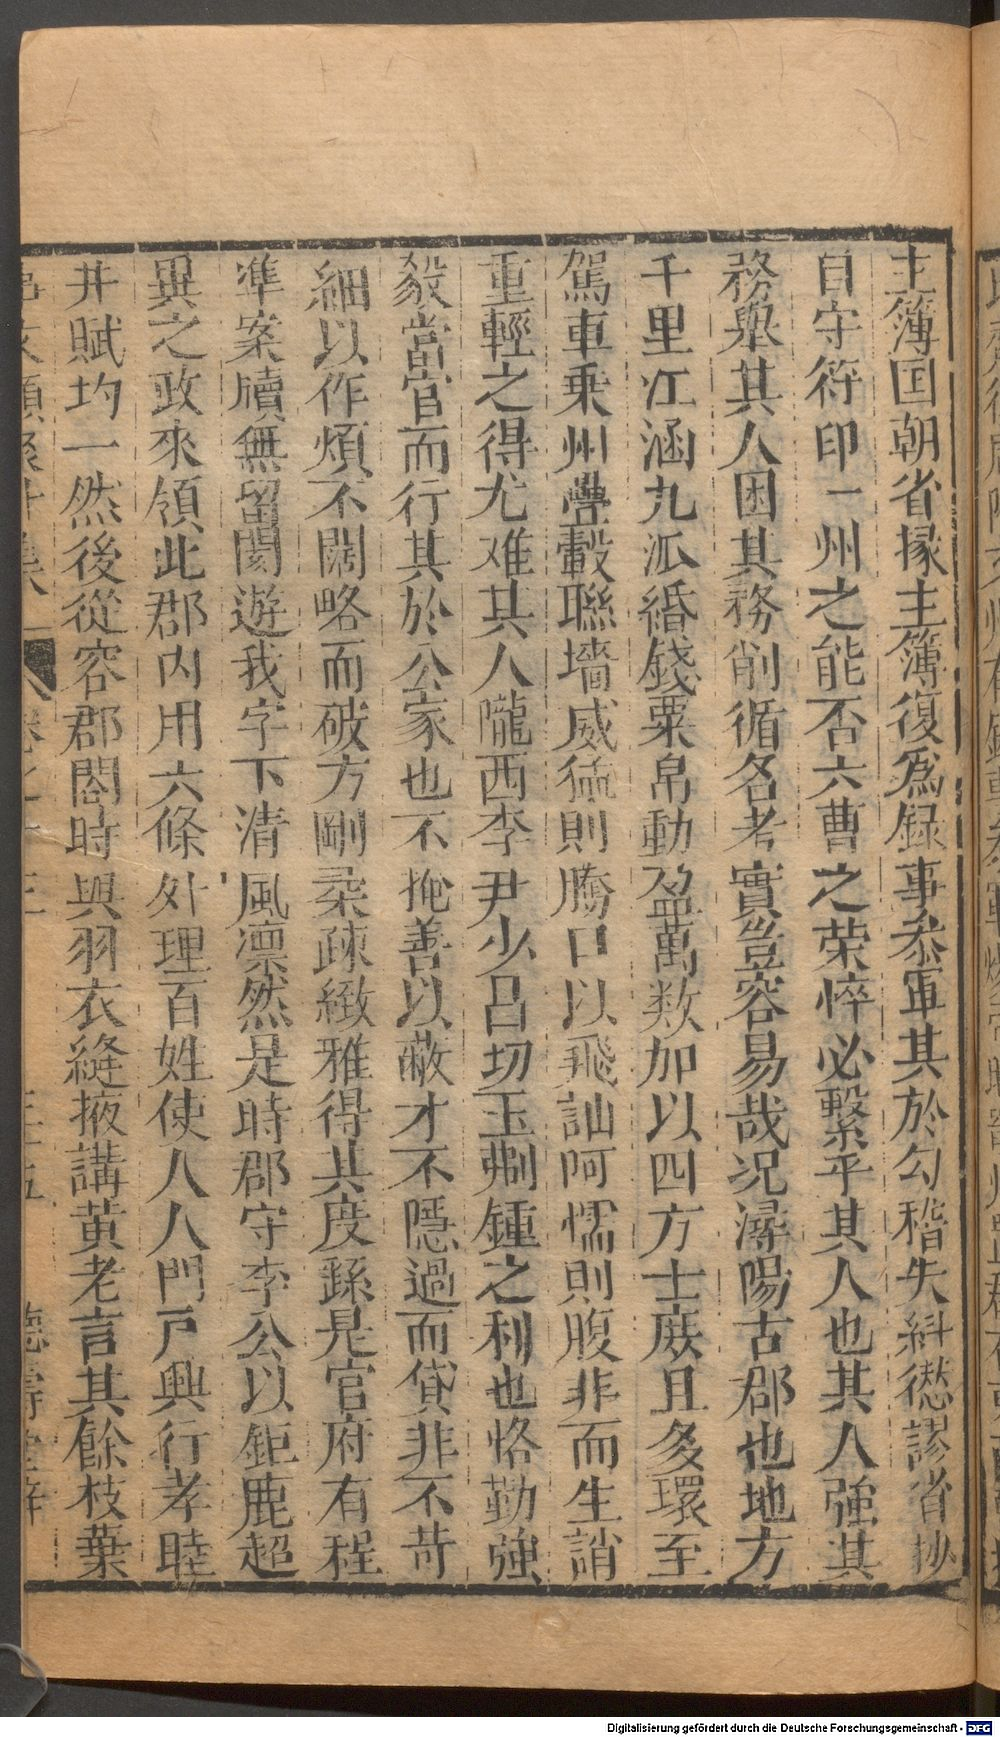 主簿囯朝省掾主簿復爲録事叅軍其於勾稽失糾愆謬省抄
自守符印一州之能否六曹之荣悴必繫乎其人也其人強其
務舉其人困其務削循名考實豈容易哉况潯陽古郡也地方
千里江涵九泒緡錢粟帛動盈萬数加以四方士庻且多環至
駕車乗州疊轂聯墻威猛則騰口以飛訕阿懦則腹非而生誚
重輕之得尤难其人隴西李尹少吕切玉劚鍾之利也恪勤強
毅當官而行其於公家也不掩善以蔽才不隱過而貸非不苛
細以作煩不闊略而破方剛柔疎緻雅得其度繇是官府有程
準案牘無留閡遊我字下清風凛然是時郡守李公以鉅鹿超
異之政來領此郡内用六條外理百姓使人人門戸興行孝睦
井賦均一然後從容郡閤時與羽衣縫掖講黄老言其餘枝葉
Digitalisierung gefördert durch die Deutsche Forschungsgemeinschaft - DFG